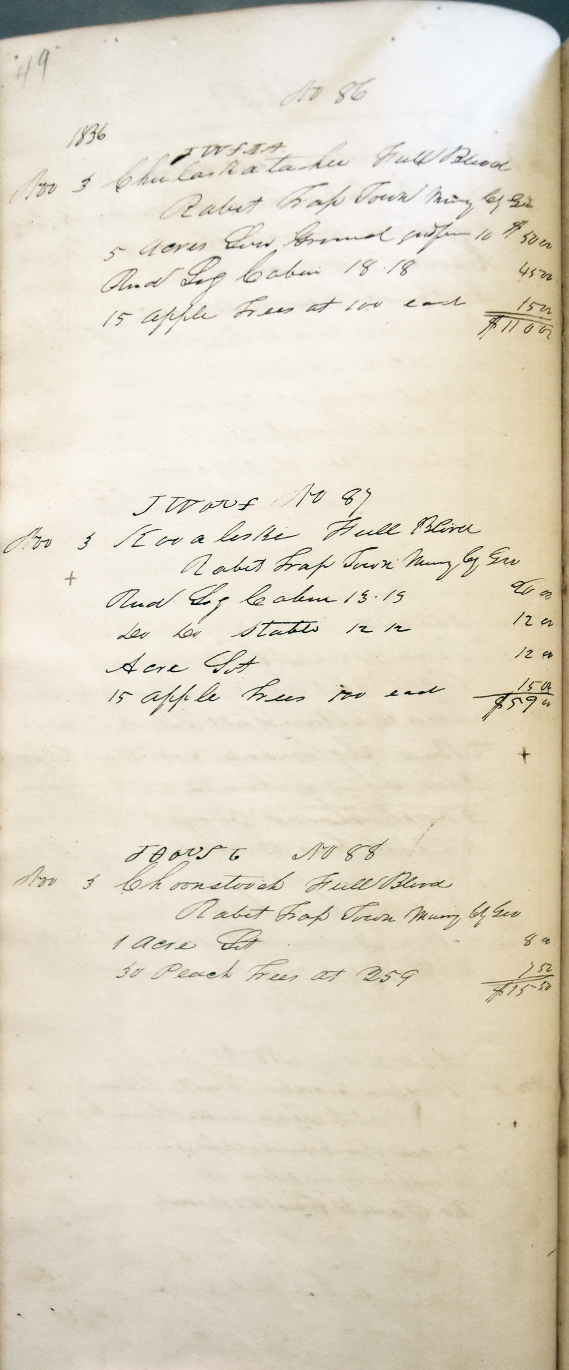 49
No 86
1836
Nov 3 Full Blood
Rabet Trap Town Murry Cty Geo
5 acres Low Ground 10 $50 00
Rud Log Cabin 18.18 45 00
15 apple trees at 100 each 15 00
$110 00
No 87
Nov 3 Full Blood
Rabet Trap Town Murry Cty Geo
Rud Log Cabin 15.15 20 00
Do Do Stable 12 12 12 00
Acre Lot 12 00
15 apple trees 100 each 15 00
$59 00
No 88
Nov 3 Choonstooch Full Blood
Rabet Trap Town Murry Cty Geo
1 acre Lot 8 00
30 Peach trees at 7 50
$15 50